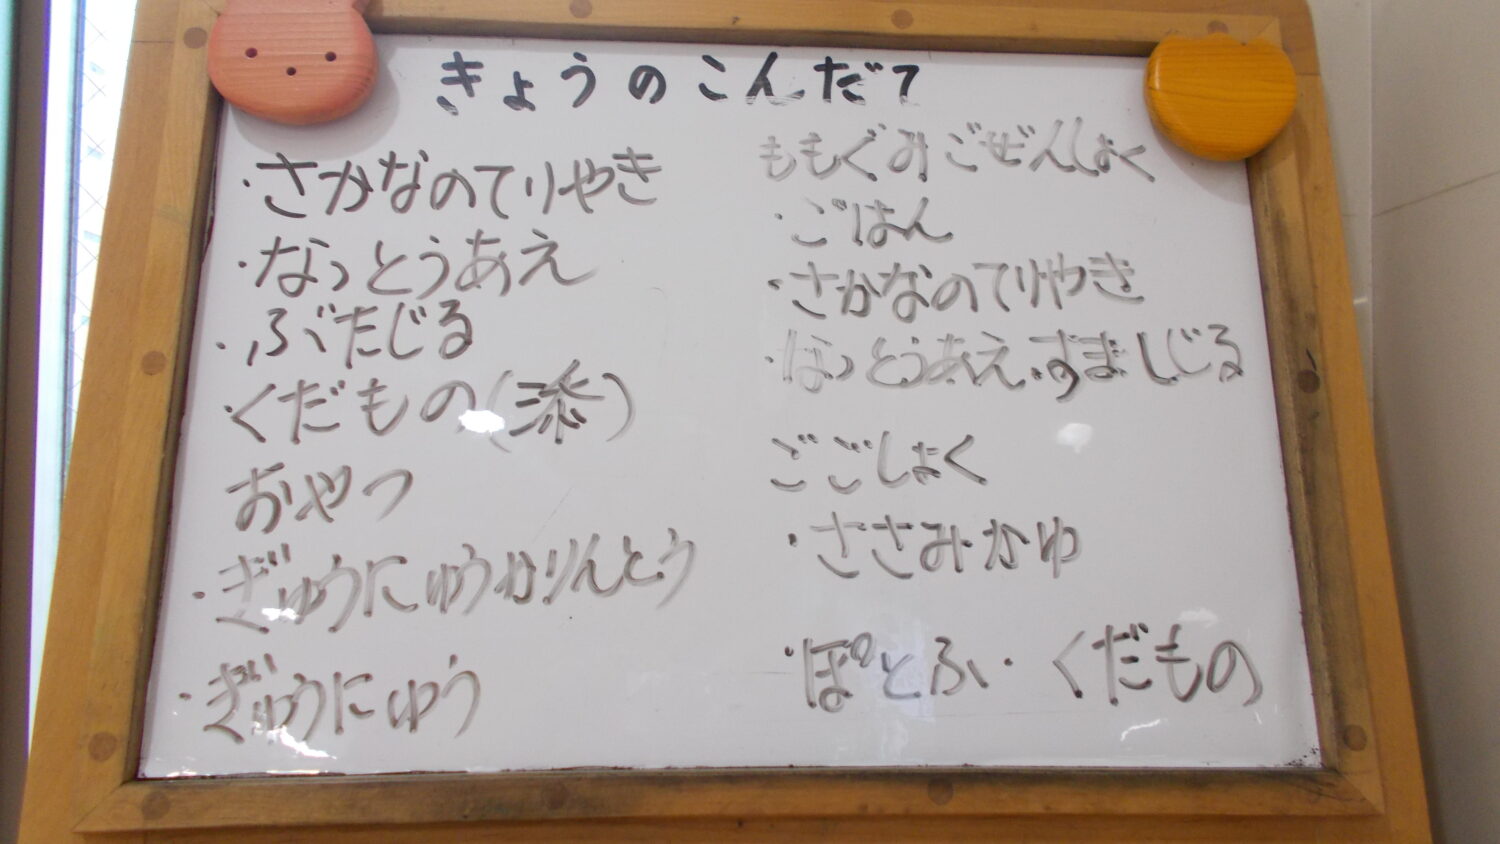 きょうのこんだて
・さかなのてりやき
・なっとうあえ
・ぶたじる
・くだもの(添)
おやつ
・ぎゅうにゅうかりんとう
・ぎゅうにゅう
ももぐみごぜんしょく
・ごはん
・さかなのてりやき
・なっとうあえ・すましじる
ごごしょく
・ささみかゆ
・ぽとふ・くだもの